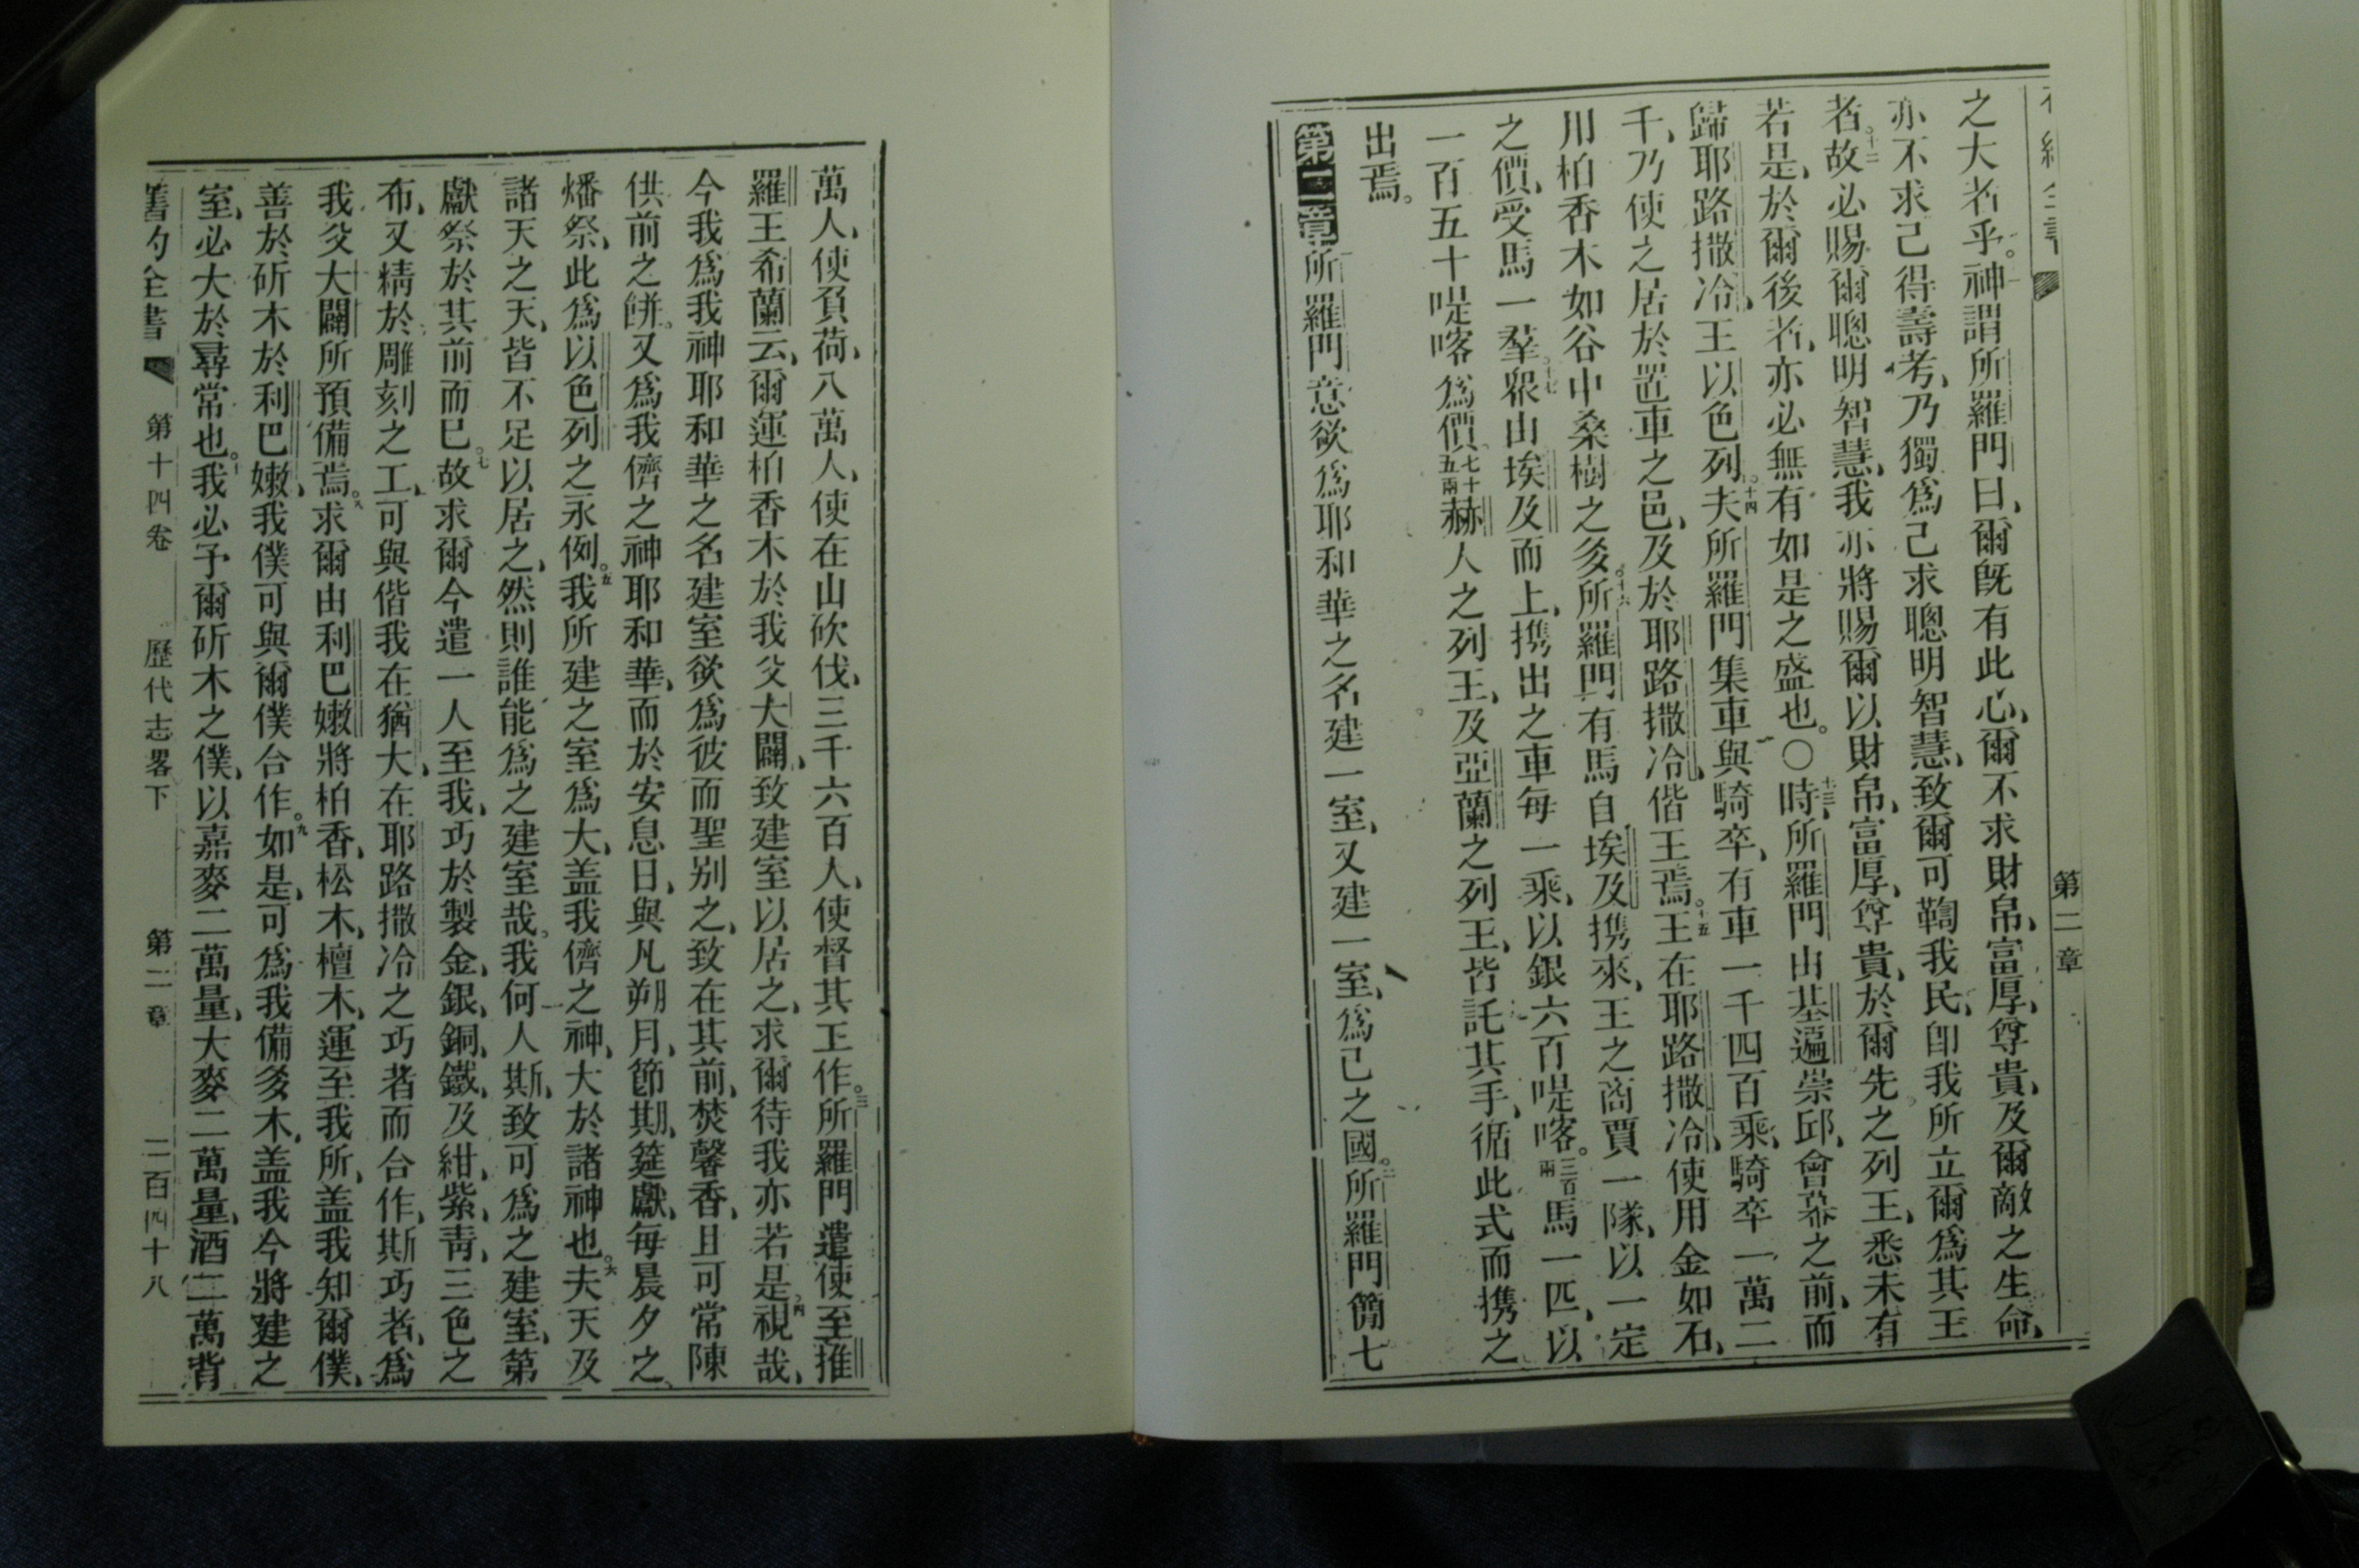 第二章
之大者乎。神謂所羅門曰、爾旣有此心、爾不求財帛、富厚、尊貴、及爾敵之生命、
亦不求己得壽考、乃獨爲己求聰明智慧、致爾可鞫我民、卽我所立爾爲其王
者。十二故必賜爾聰明智慧、我亦將賜爾以財帛、富厚、尊貴、於爾先之列王、悉未有
若是、於爾後者、亦必無有如是之盛也。○十三時、所羅門由基遍崇邱、會幕之前、而
歸耶路撒冷、王以色列。十四夫所羅門集車與騎卒、有車一千四百乘、騎卒一萬二
千、乃使之居於置車之邑、及於耶路撒冷、偕王焉。十五王在耶路撒冷、使用金如石、
用柏香木如谷中桑樹之多。十六所羅門有馬自埃及携來、王之商賈一隊、以一定
之價、受馬一羣。十七衆由埃及而上、携出之車每一乘、以銀六百㖷喀。三百兩馬一匹、以
一百五十㖷喀爲價。七十五兩赫人之列王、及亞蘭之列王、皆託其手、循此式而携之
出焉。
第二章所羅門意欲爲耶和華之名建一室、又建一室、爲己之國。二所羅門簡七
萬人、使負荷、八萬人、使在山砍伐、三千六百人、使督其工作。三所羅門遣使至推
羅王希蘭云、爾運柏香木於我父大闢、致建室以居之、求爾待我亦若是。四視哉、
今我爲我神耶和華之名建室欲爲彼而聖别之、致在其前、焚馨香、且可常陳
供前之餠。又爲我儕之神耶和華、而於安息日、與凡朔月、節期、筵獻、每晨夕之
燔祭、此爲以色列之永例。五我所建之室爲大、盖我儕之神、大於諸神也。六夫天及
諸天之天、皆不足以居之、然則誰能爲之建室哉。我何人斯、致可爲之建室、第
獻祭於其前而已。七故求爾今遣一人至我、巧於製金、銀、銅、鐵、及紺、紫、靑、三色之
布、又精於雕刻之工、可與偕我在猶大、在耶路撒冷之巧者而合作、斯巧者、爲
我父大闢所預備焉。八求爾由利巴嫩將柏香、松木、檀木、運至我所、盖我知爾僕、
善於斫木於利巴嫩、我僕可與爾僕合作。九如是、可爲我備多木、盖我今將建之
室、必大於尋常也。十我必予爾斫木之僕、以嘉麥二萬量、大麥二萬量、酒二萬背
舊約全書 第十四卷 歷代志畧下 第二章 二百四十八